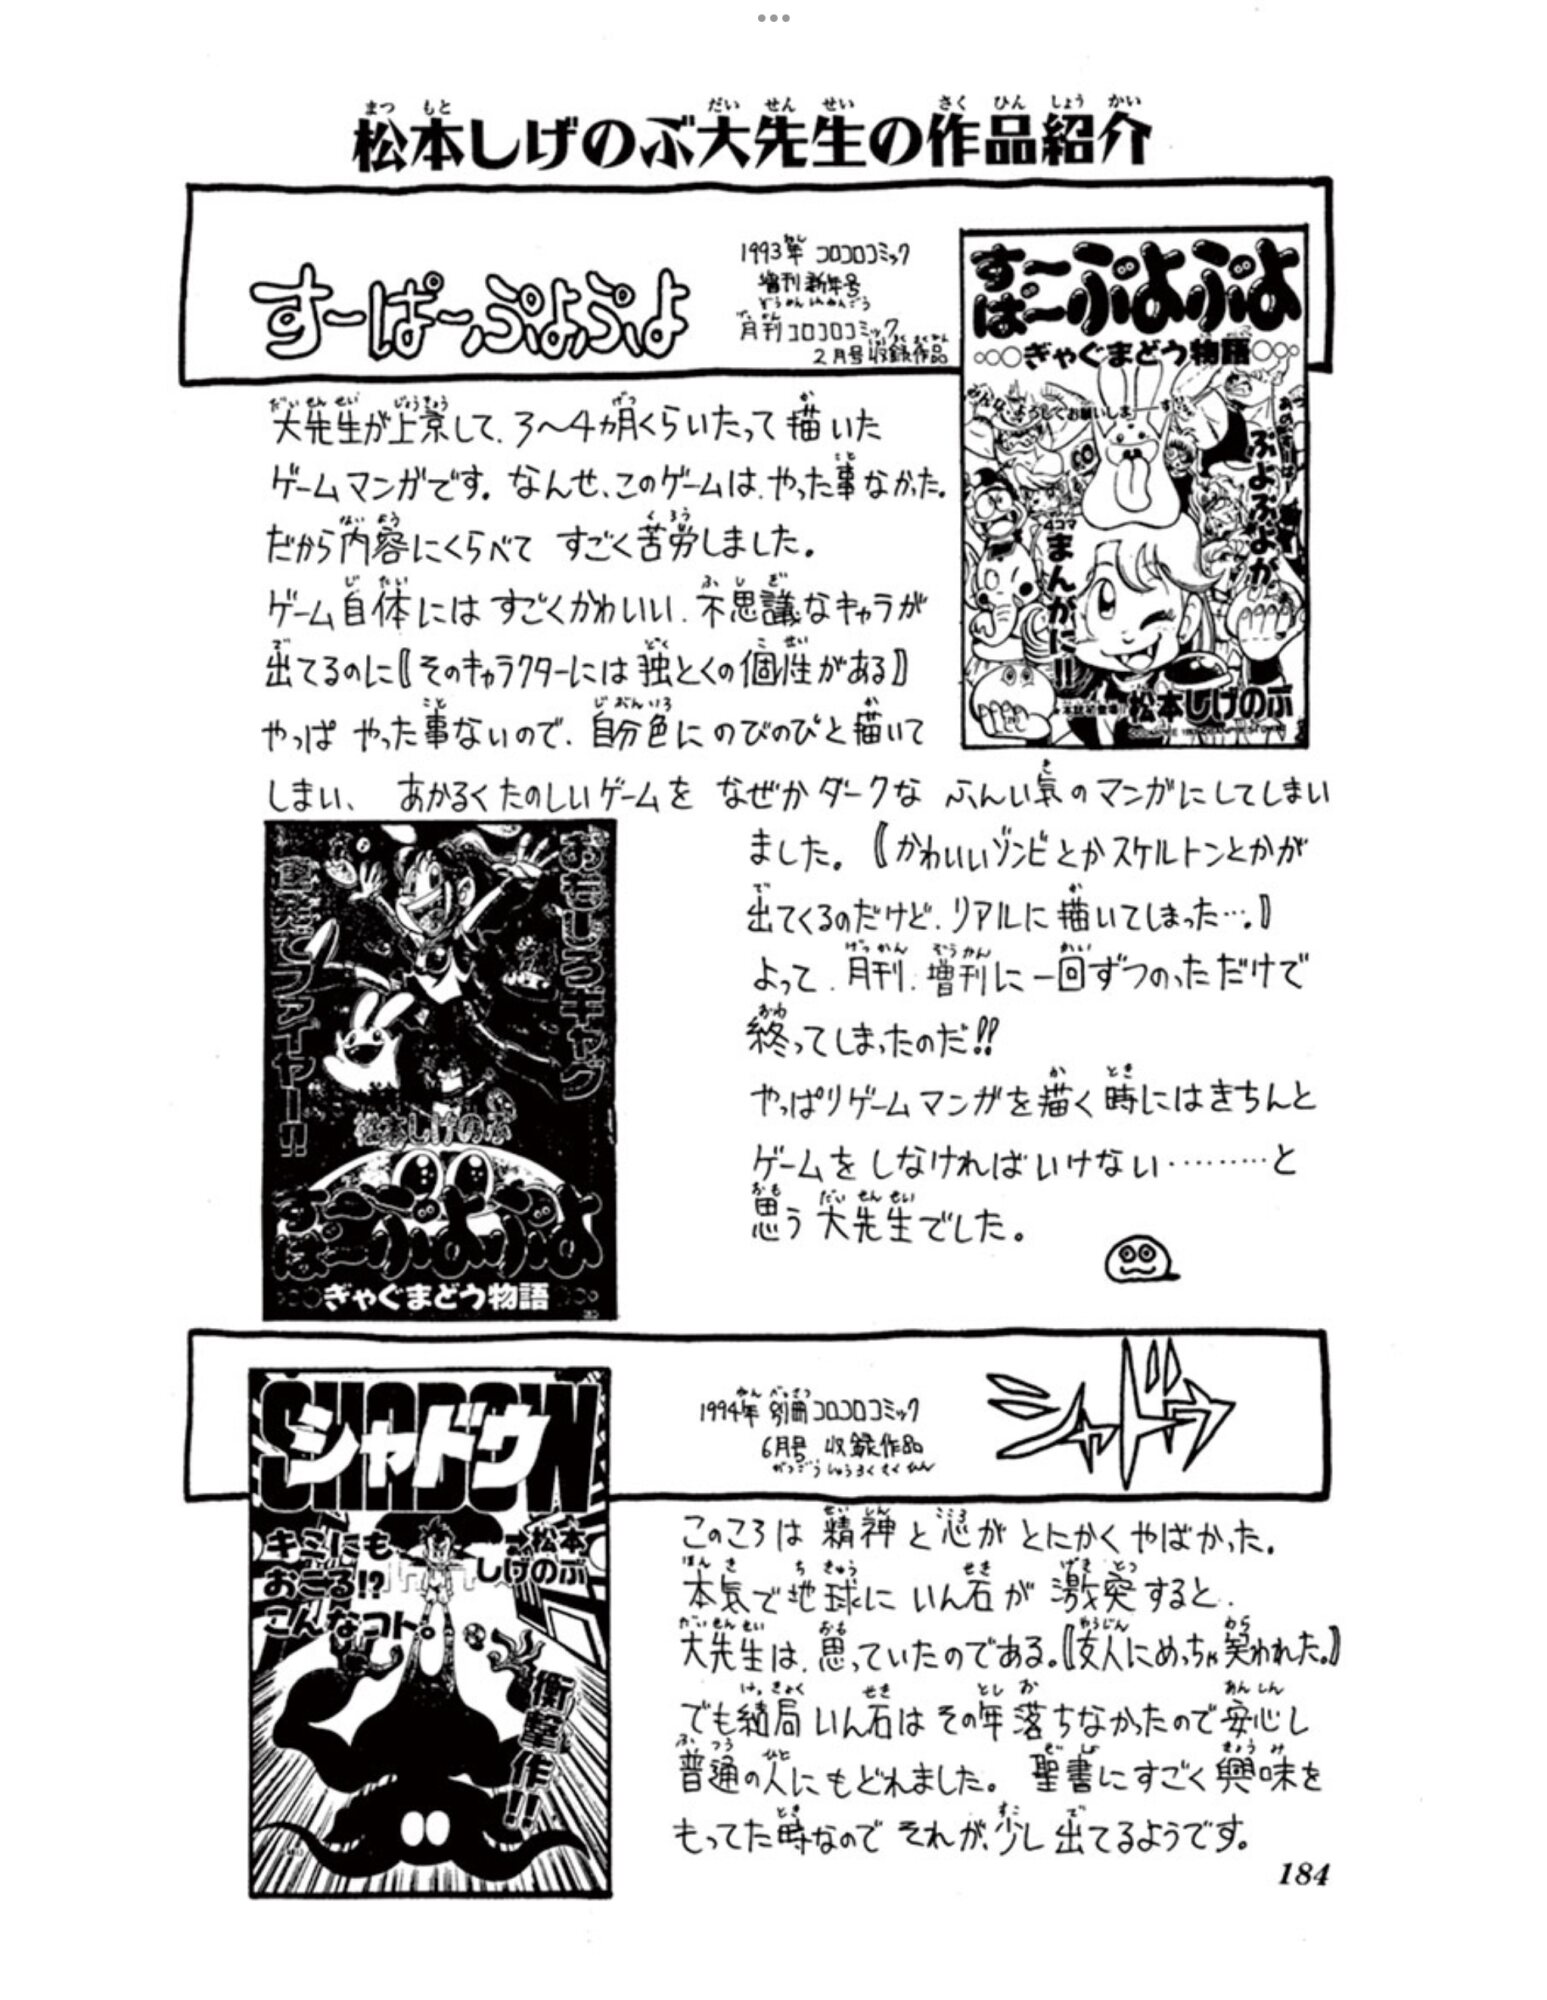 松本しげのぶ大先生の作品紹介
すーぱーぷよぷよ
1993年 コロコロコミック
増刊新年号
月刊コロコロコミック
2月号収録作品
すーぱーぷよぷよ
ぎゃぐまどう物語
みんな、よろしくお願いしまーす!
あのすーぱーぷよぷよが
4コマまんがに!!
松本しげのぶ
大先生が上京して、3〜4ヵ月くらいたって描いた
ゲームマンガです。なんせ、このゲームは、やった事なかった。
だから内容にくらべて すごく苦労しました。
ゲーム自体には すごくかわいい、不思議なキャラが
出てるのに〖そのキャラクターには独とくの個性がある〗
やっぱ やった事ないので、自分色にのびのびと描いて
しまい、 あかるくたのしいゲームを なぜかダークな ふんい気のマンガにしてしまい
ました。〖かわいいゾンビとかスケルトンとかが
出てくるのだけど、リアルに描いてしまった…。〗
よって、月刊、増刊に一回ずつのっただけで
終ってしまったのだ!!
やっぱりゲームマンガを描く時にはきちんと
ゲームをしなければいけない………と
思う大先生でした。
おもしろギャグ
連発でファイヤー!!
松本しげのぶ
すーぱーぷよぷよ
ぎゃぐまどう物語
シャドウ
1994年 別冊コロコロコミック
6月号 収録作品
SHADOW
シャドウ
キミにも
おこる!?
こんなコト。
松本
しげのぶ
衝撃作!!
このころは 精神と心がとにかくやばかった。
本気で地球に いん石が 激突すると、
大先生は、思っていたのである。〖友人にめっちゃ笑われた。〗
でも結局いん石は その年落ちなかったので安心し
普通の人にもどれました。 聖書にすごく興味を
もってた時なので それが、少し出てるようです。
184